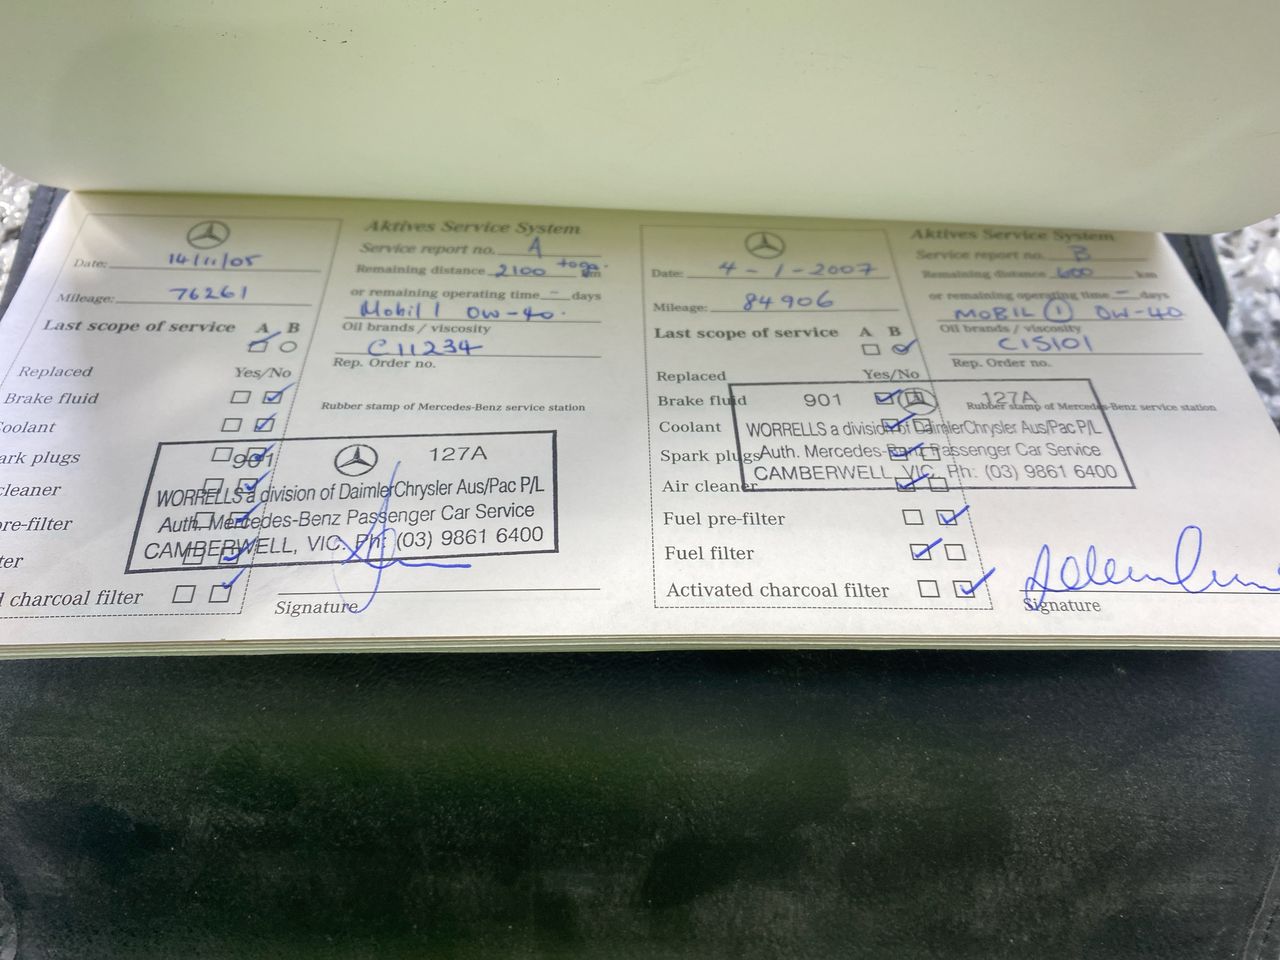 Date: 14/11/05
Mileage: 76261
Last scope of service A B
Replaced Yes/No
Brake fluid
Coolant
ark plugs
cleaner
re-filter
ter
d charcoal filter
Aktives Service System
Service report no. A
Remaining distance 2100 togo. km
or remaining operating time - days
Mobil 1 0W-40.
Oil brands / viscosity
C11234
Rep. Order no.
Rubber stamp of Mercedes-Benz service station
901 127A
WORRELLS a division of DaimlerChrysler Aus/Pac P/L
Auth. Mercedes-Benz Passenger Car Service
CAMBERWELL, VIC. Ph: (03) 9861 6400
Signature
Date: 4-1-2007
Mileage: 84906
Last scope of service A B
Replaced Yes/No
Brake fluid
Coolant
Spark plugs
Air cleaner
Fuel pre-filter
Fuel filter
Activated charcoal filter
Aktives Service System
Service report no. B
Remaining distance 600 km
or remaining operating time - days
MOBIL 1 0W-40
Oil brands / viscosity
C15101
Rep. Order no.
Rubber stamp of Mercedes-Benz service station
901 127A
WORRELLS a division of DaimlerChrysler Aus/Pac P/L
Auth. Mercedes-Benz Passenger Car Service
CAMBERWELL, VIC. Ph: (03) 9861 6400
Signature